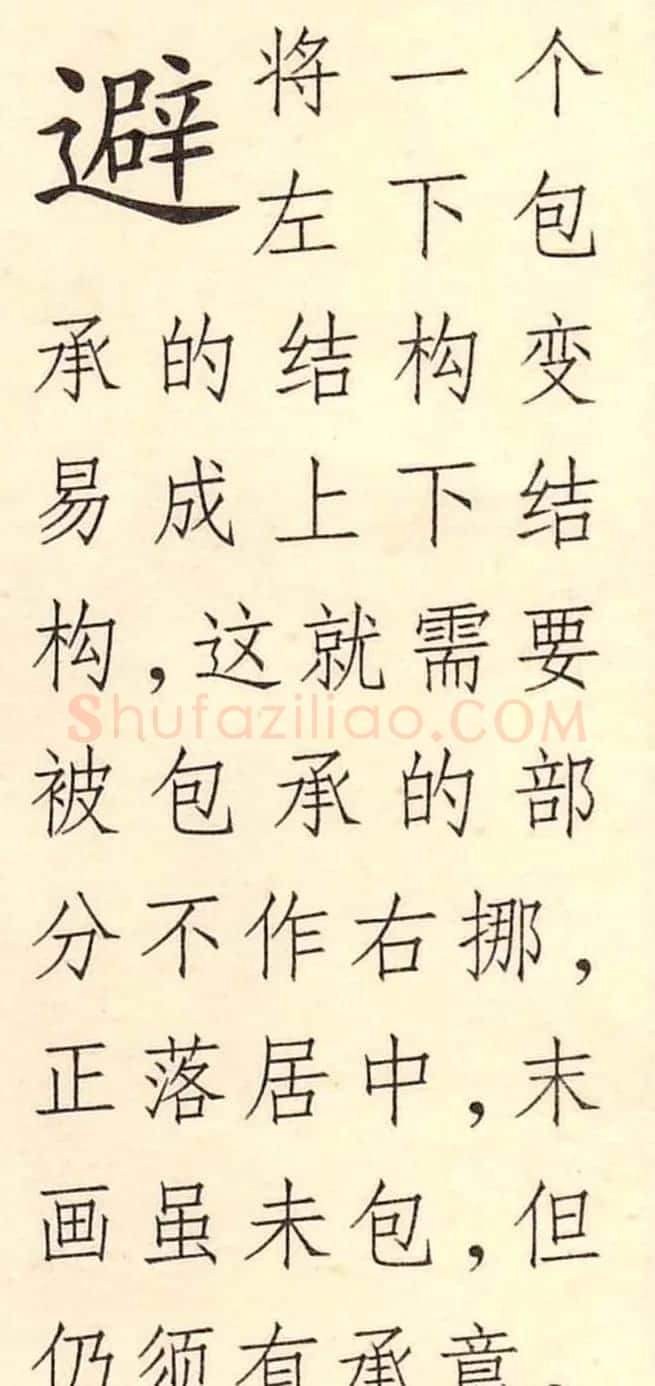 避
将一个
左下包
承的结构变
易成上下结
构,这就需要
Shufaziliao.COM
被包承的部
分不作右挪,
正落居中,末
画虽未包,但
仍须有承意。